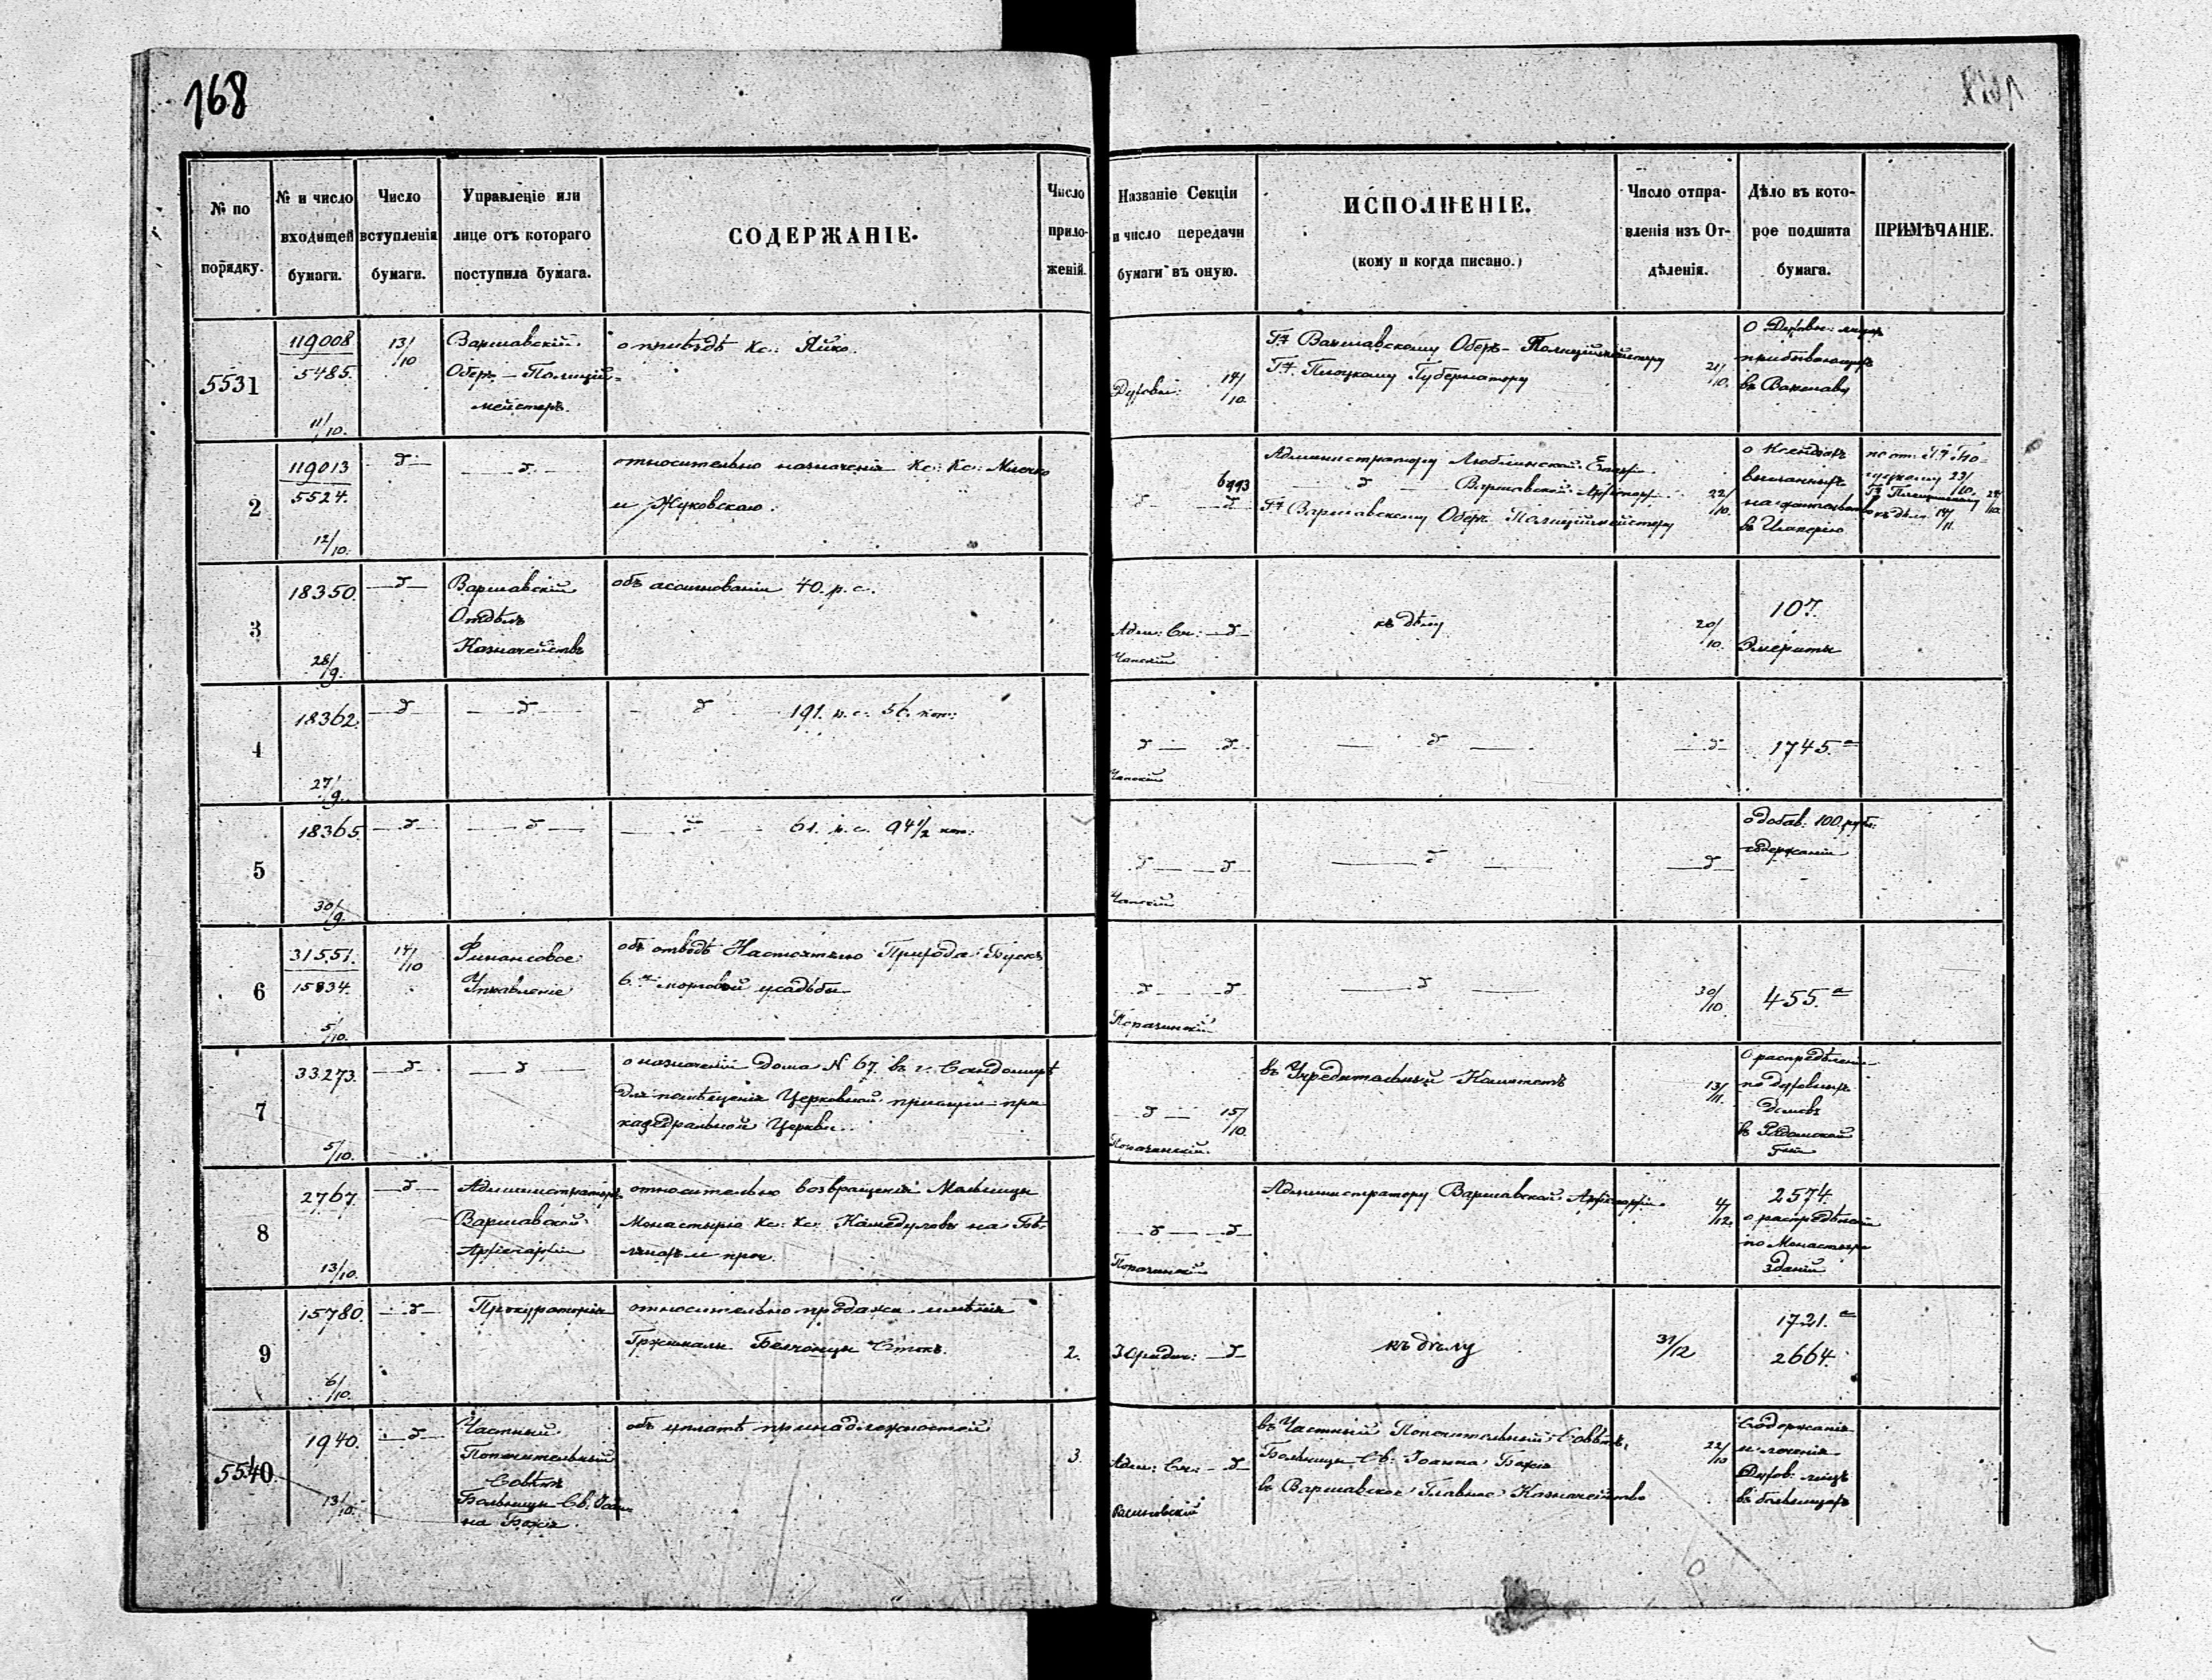 168
№ по порядку.
№ и число входящей бумаги.
Число вступленія бумаги.
Управленіе или лице отъ котораго поступила бумага.
СОДЕРЖАНІЕ.
Число приложеній.
Названіе Секціи и число передачи бумаги въ оную.
ИСПОЛНЕНІЕ.
(кому и когда писано.)
Число отправленія изъ Отдѣленія.
Дѣло въ которое подшита бумага.
ПРИМѢЧАНІЕ.
5531
119008
5485.
11/10.
13/10
Варшавскій
Оберъ-Полицій-
мейстеръ.
о пріѣздѣ Кс:
Духовн: 14/10.
Гн. Варшавскому Оберъ-Полиціймейстеру
Гн. Плоцкому Губернатору
21/10.
О Духовн: лицахъ
прибывающихъ
въ Варшаву
2
119013
5524.
12/10.
относительно назначенія Кс: Кс:
и Жуковскаго.
Администратору Люблинской Епархіи
Варшавской Архіепархіи
Гн. Варшавскому Оберъ-Полиціймейстеру
22/10.
о Ксендзахъ
высланныхъ
на жительство
въ Имперію
3
18350.
28/9.
Варшавскій
Отдѣлъ
Казначействъ
объ ассигнованіи 40. р. с.
Адм: Сек:
къ дѣлу
20/10.
107.
Эмериты
4
18362.
27/9.
191. р. с. 56. коп:
1745.а
5
18365.
30/9.
61. р. с. 94 1/2 коп:
о добав: 100 руб:
содержаніи
6
31551.
15834.
5/10.
14/10
Финансовое
Управленіе
объ отводѣ Настоятелю Прихода Бускъ
6.ти морговой усадьбы
30/10.
455.а
7
33.273.
5/10.
о назначеніи дома N 67 въ г. Сандомирѣ
для помѣщенія Церковной прислуги при
каѳедральной Церкви.
15/10.
въ Учредительный Комитетъ
13/11.
О распредѣленіи
по духовнымъ
Домовъ
въ Радомской
Губ:
8
2767.
13/10.
Администраторъ
Варшавской
Архіепархіи
относительно возвращенія
Монастырю Кс: Кс: Камедуловъ на Бѣ-
лянахъ и проч.
Администратору Варшавской Архіепархіи
4/12.
2574.
о распредѣленіи
по Монастыр:
зданій
9
15780.
6/10.
Прокураторія
относительно продажи имѣнія
2.
Юридич:
къ дѣлу
31/12
1721.а
2664.
5540
1940.
13/10.
Частный
Попечительный
Совѣтъ
Больницы Св. Іоан-
на Божія.
объ уплатѣ принадлежностей
3.
Адм: Сек:
въ Частный Попечительный Совѣтъ
Больницы Св. Іоанна Божія
въ Варшавское Главное Казначейство
22/10
Содержаніе
и леченіе
Духов: лицъ
въ больницахъ